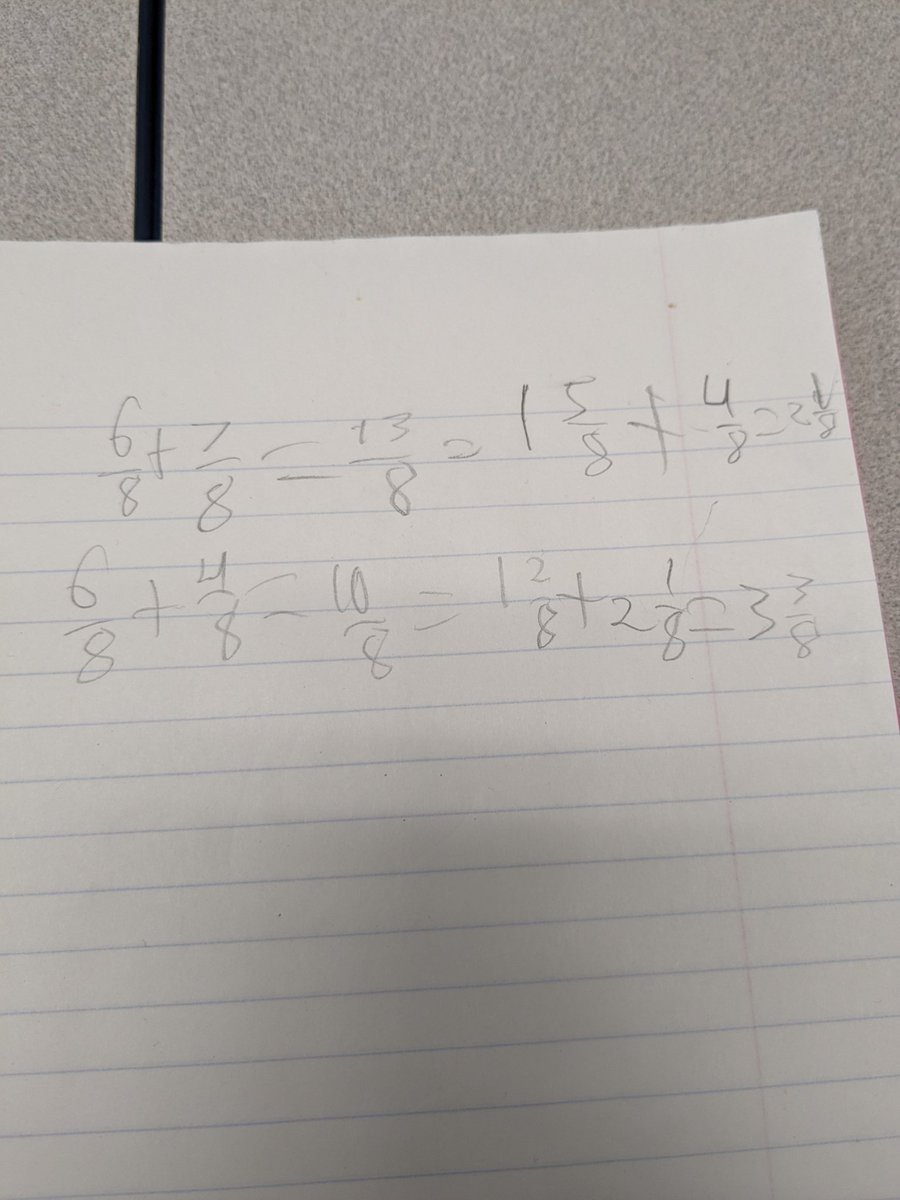 6/8 + 7/8 = 13/8 = 1 5/8 + 4/8 = 2 1/8
6/8 + 4/8 = 10/8 = 1 2/8 + 2 1/8 = 3 3/8